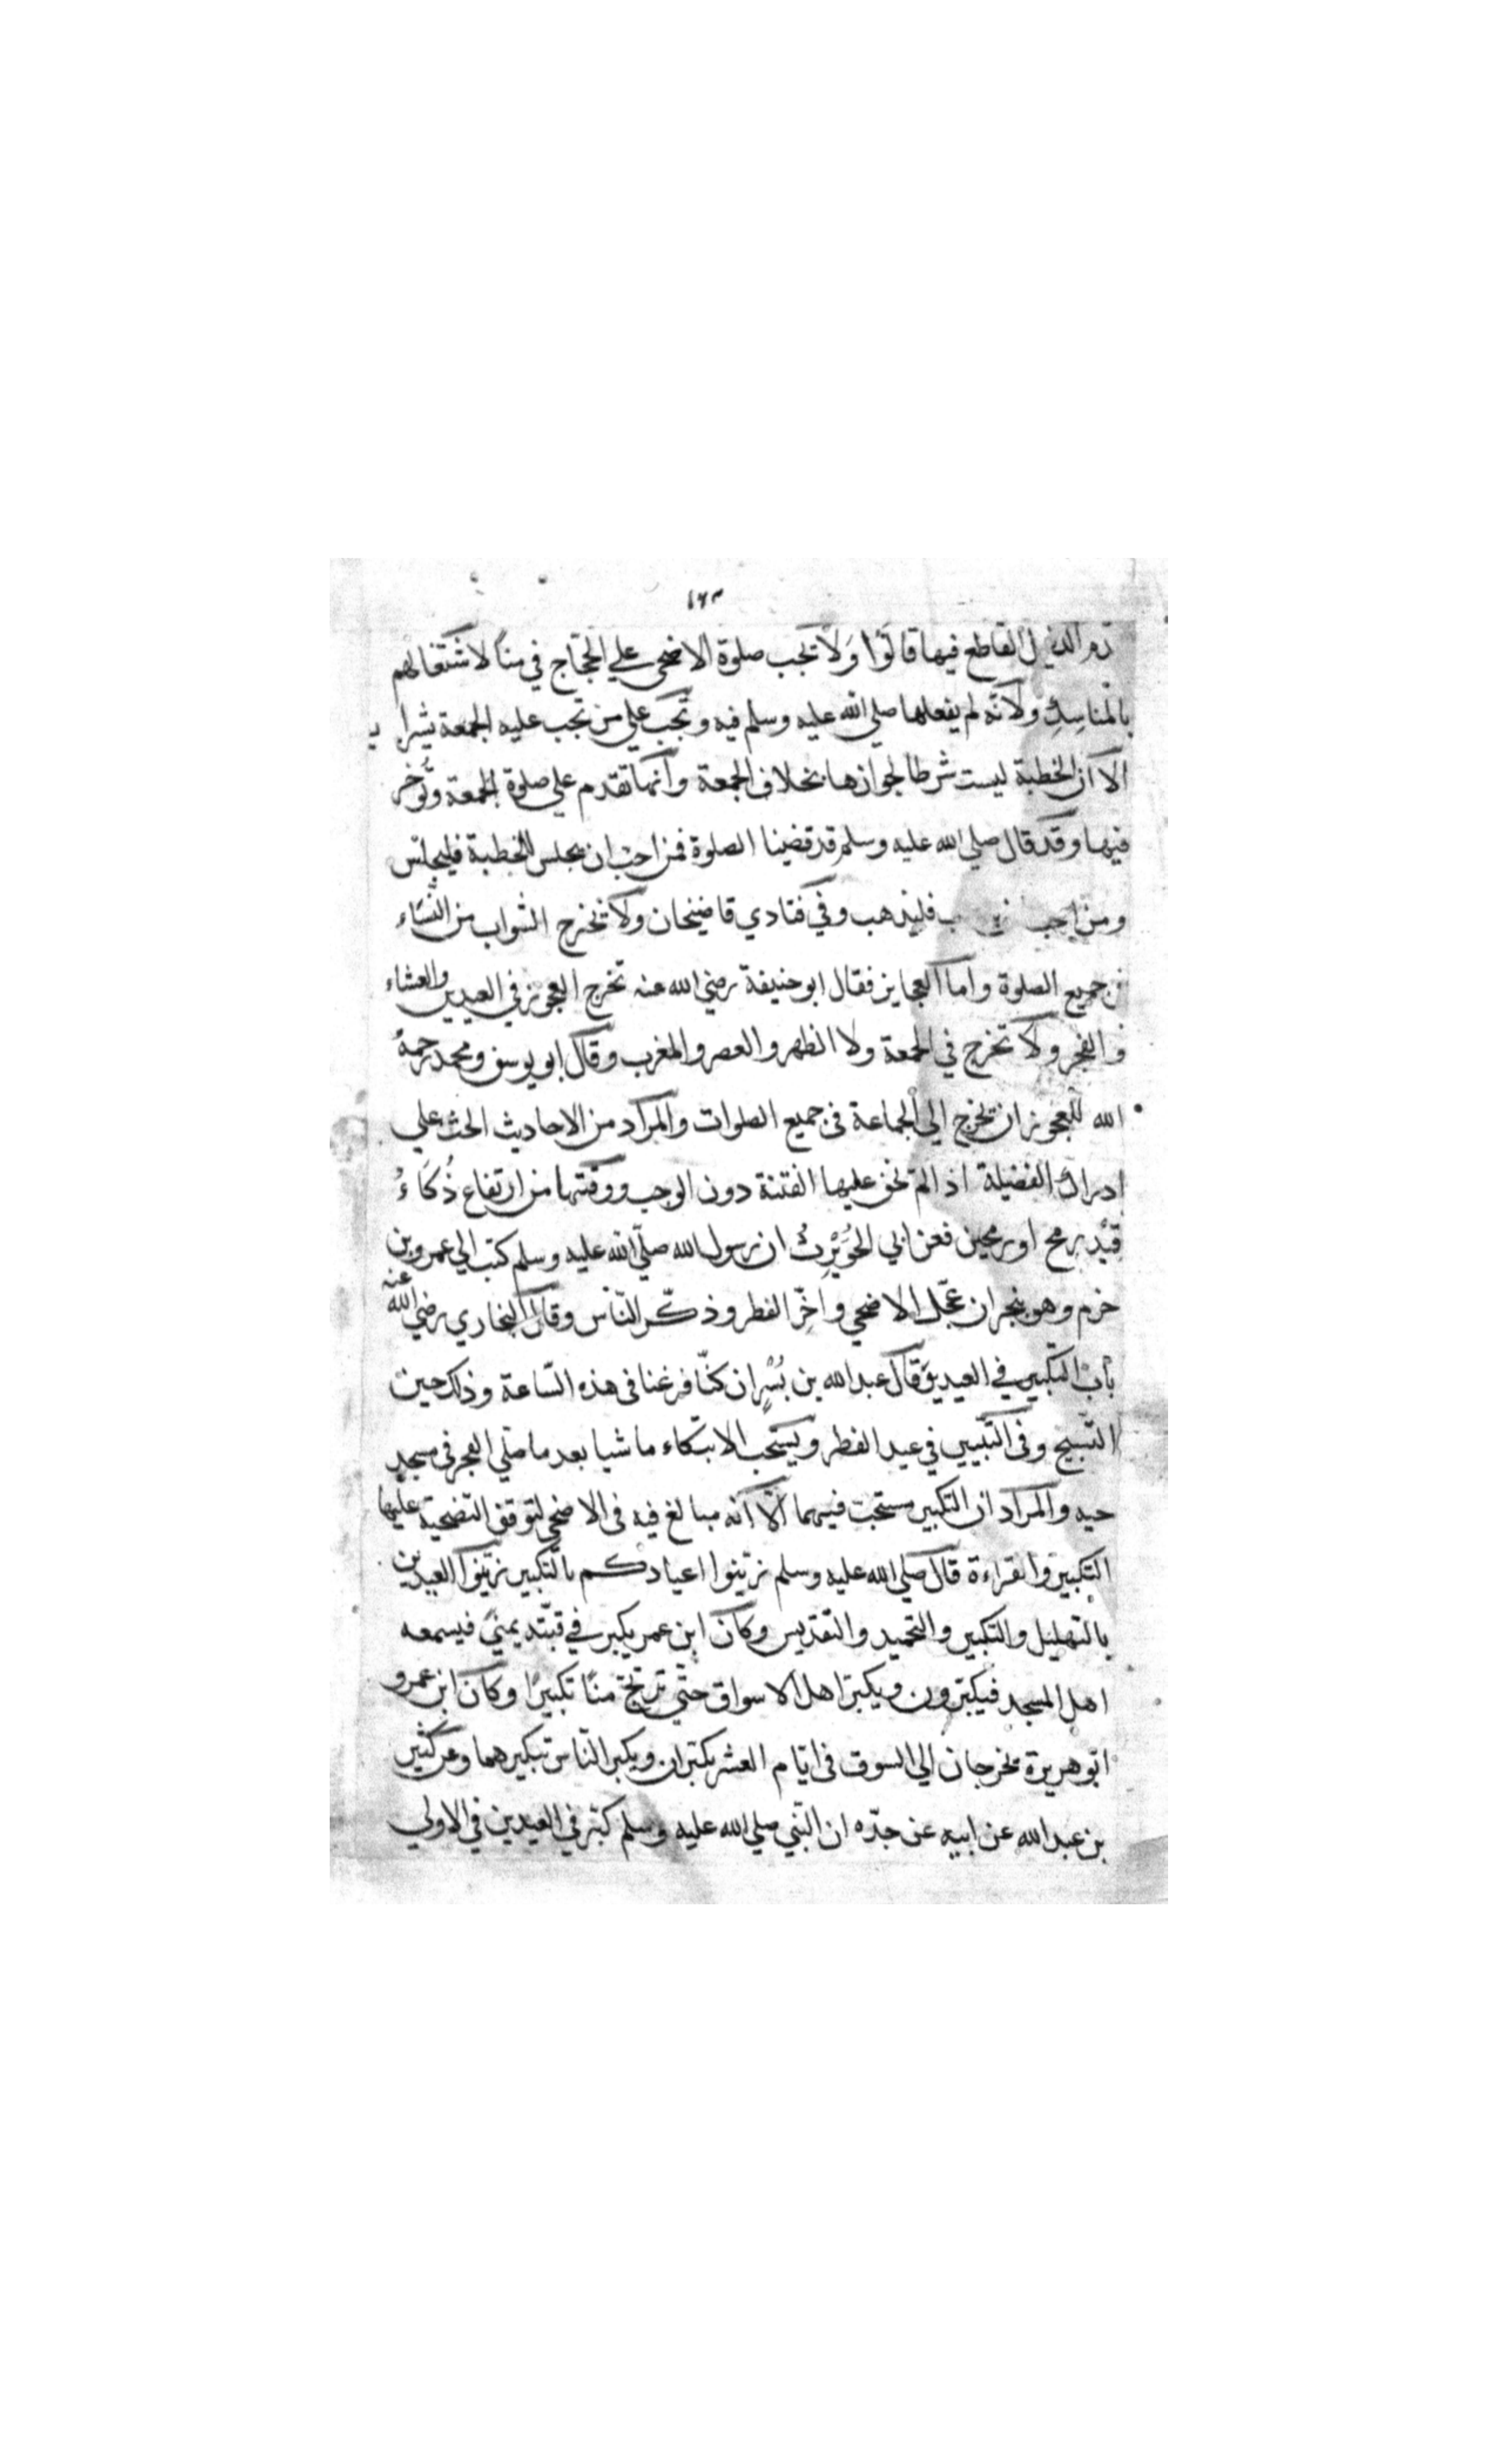 ١٦٣
الدليل القاطع فيها قالوا ولا تجب صلوة الاضحى علي الحجّاج في مناً لاشتغالهم
بالمناسك ولانّه لم يفعلها صلي الله عليه وسلم فيه وتجب علي من تجب عليه الجمعة
الا ان الخطبة ليست شرطا لجوازها بخلاف الجمعة وانها تقدم علي صلوة الجمعة وتُوخر
فيها وقد قال صلي الله عليه وسلم قد قضينا الصلوة فمن احب ان يجلس للخطبة فليجلس
ومن احب فليذهب وفي فتاوي قاضيخان ولا تخرج الشواب من النّساء
في جميع الصلوة واما العجايز فقال ابو حنيفة رضي الله عنه تخرج العجوز في العيدين والعشاء
والفجر ولا تخرج في الجمعة ولا الظهر والعصر والمغرب وقال ابو يوسف ومحمد رحمهُ
الله للعجوز ان تخرج الي الجماعة في جميع الصلوات والمراد من الاحاديث الحث علي
ادراك الفضيلة اذا لم تخف عليها الفتنة دون الوجب ووقتها من ارتفاع ذُكاءُ
قيْد رمح او رمحين فعن ابي الحُوَيْرِثُ ان رسول الله صلّي الله عليه وسلم كتب الي عمرو بن
حزم وهو بنجران عجّل الاضحي واخّر الفطر وذكّر النّاس وقال البخاري رضي الله عنه
بابْ التكبير في العيدين قال عبد الله بن بُسْرٍ ان كنّا فرغنا في هذه السّاعة وذلك حين
التّسبيح وفي التبيين في عيد الفطر ويستحب الابتكاء ماشيا بعد ما صلي الفجر في مسجد
حيه والمراد ان التكبير مستحبّ فيهما الّا انّه مبالغ فيه في الاضحي لتوقف التضحية عليها
التكبير والقراءة قال صلي الله عليه وسلم زيّنوا اعيادكم بالتكبير زيّنوا العيدين
بالتهليل والتكبير والتحميد والتقديس وكان ابن عمر يكبر في قبّته بمنيً فيسمعه
اهل المسجد فيكبّرون ويكبرّ اهل الاسواق حتّي ترتجّ مناً تكبيرًا وكان ابن عمر و
ابو هريرة يخرجان الي السوق في ايّام العشر يكبّران ويكبر النّاس بتكبيرهما وعن كثير
بن عبد الله عن ابيه عن جدّه ان النّبي صلي الله عليه وسلم كبّر في العيدين في الاولي